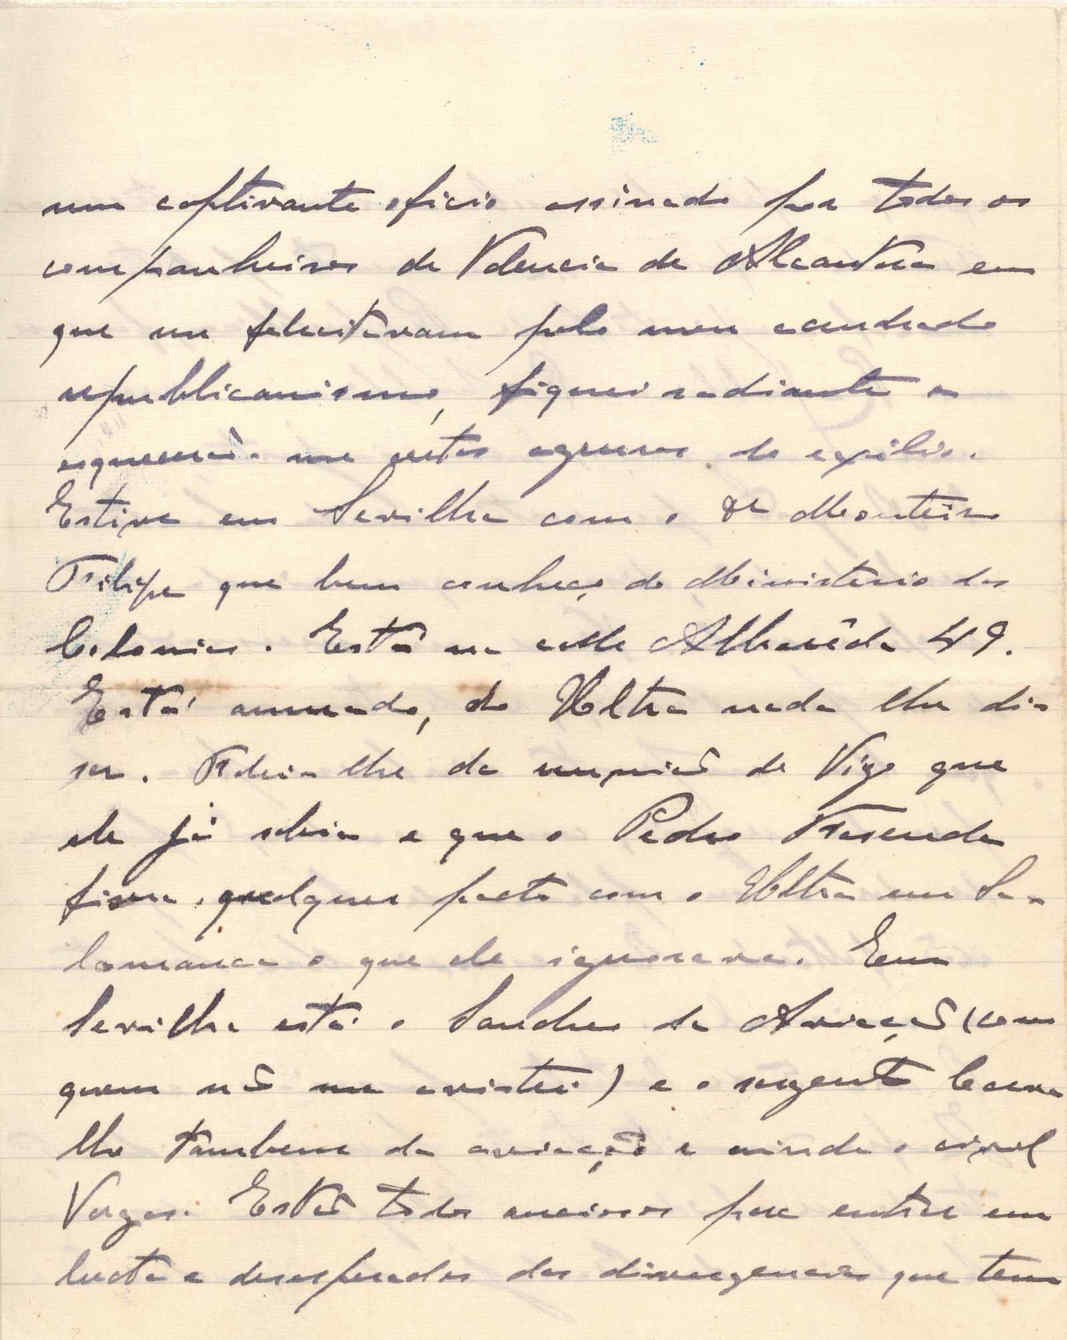 num captivante oficio assinado por todos os
companheiros de Valencia de Alcantara em
que me felicitavam pelo meu acendrado
republicanismo, fiquei radiante e
esqueceram-me estas agruras do exilio.
Estive em Sevilha com o Dr Monteiro
Filipe que bem conheço do Ministerio das
Colonias. Está na calle Albareda 49.
Está animado, do Utra nada lhe dis-
se. Falei-lhe da reunião de Vigo que
ele já sabia e que o Pedro Resende
fizera qualquer pacto com o Utra em Sa-
lamanca o que ele ignorava. Em
Sevilha está o Sanches da Aviação (com
quem não me avistei) e o sargento Carva
lho tambem da aviação e ainda o civil
Vargas. Estão todos anciosos por entrar em
lucta e desesperados das divergencias que tem